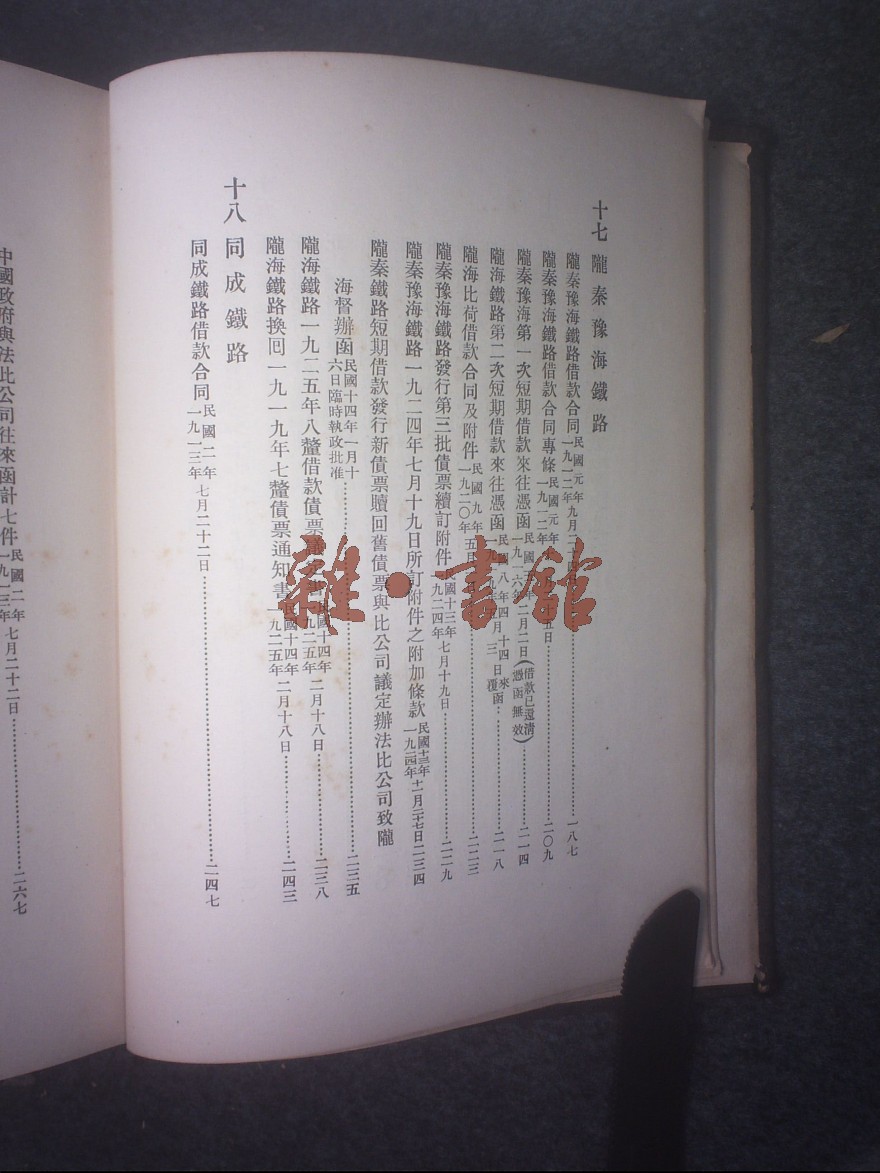 十七 隴秦豫海鐵路
隴秦豫海鐵路借款合同 民國元年九月二 一九一二年 一八七
隴秦豫海鐵路借款合同專條 民國元年 一九一二年 二〇九
隴秦豫海第一次短期借款來往憑函 民國 一九一六年 二月二日(借款已還清憑函無效) 二一四
隴海鐵路第二次短期借款來往憑函 民國八年四月十四 來 日覆函 二一八
隴海比荷借款合同及附件 民國九年 一九二〇年 五 二二三
隴秦豫海鐵路發行第三批債票續訂附件 民國十三年 一九二四年 七月十九日 二二九
隴秦豫海鐵路一九二四年七月十九日所訂附件之附加條款 民國十三年 一九二四年 十一月二十七日 二三四
隴秦鐵路短期借款發行新債票贖回舊債票與比公司議定辦法比公司致隴
海督辦函 民國十四年一月十六日臨時執政批准 二三五
隴海鐵路一九二五年八釐借款債票 民國十四年 一九二五年 二月十八日 二三八
隴海鐵路換回一九一九年七釐債票通知書 民國十四年 一九二五年 二月十八日 二四三
十八 同成鐵路
同成鐵路借款合同 民國二年 一九一三年 七月二十二日 二四七
中國政府與法比公司往來函計七件 民國二年 一九一三年 七月二十二日 二六七
雜·書館